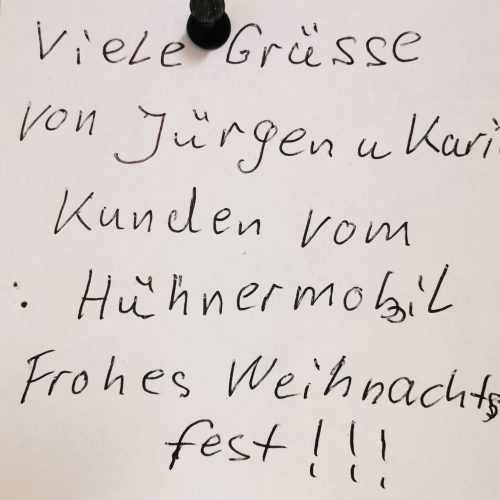 Viele Grüsse
von Jürgen u Kari
Kunden vom
Hühnermobil
Frohes Weihnachts
fest!!!